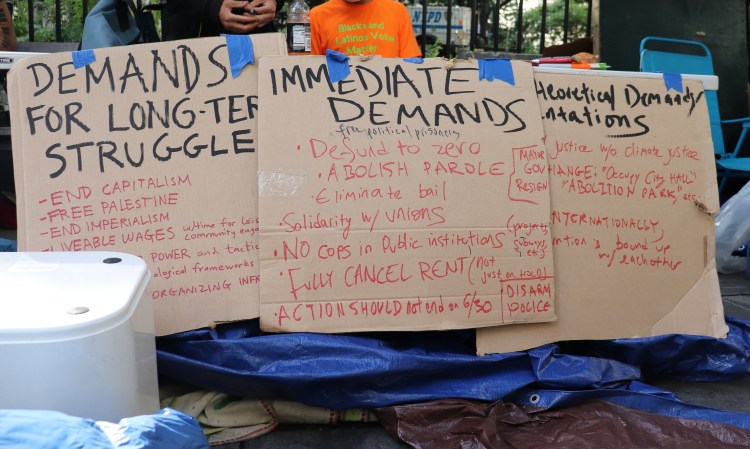 Blacks and
Latinos Vote
Matter
NYPD
DEMANDS
FOR LONG-TER
STRUGGLE
-END CAPITALISM
-FREE PALESTINE
-END IMPERIALISM
-LIVEABLE WAGES w/time for leis
community enga
POWER and tactic
ological frameworks
ORGANIZING INFR
IMMEDIATE
DEMANDS
free political prisoners
• Defund to zero
• ABOLISH PAROLE
• Eliminate bail
• Solidarity w/ unions
• NO COPS in Public institutions
• FULLY CANCEL RENT (not
just on hold)
• ACTION SHOULD not end on 6/30
MAYOR
GOV
RESIGN
(projects,
subways,
etc)
DISARM
POLICE
heoretical Demands
ntations
justice w/o climate justice
HANGE: "Occupy City HALL"
"ABOLITION PARK," etc
INTERNATIONALLY,
ntion is bound up
w/ eachother